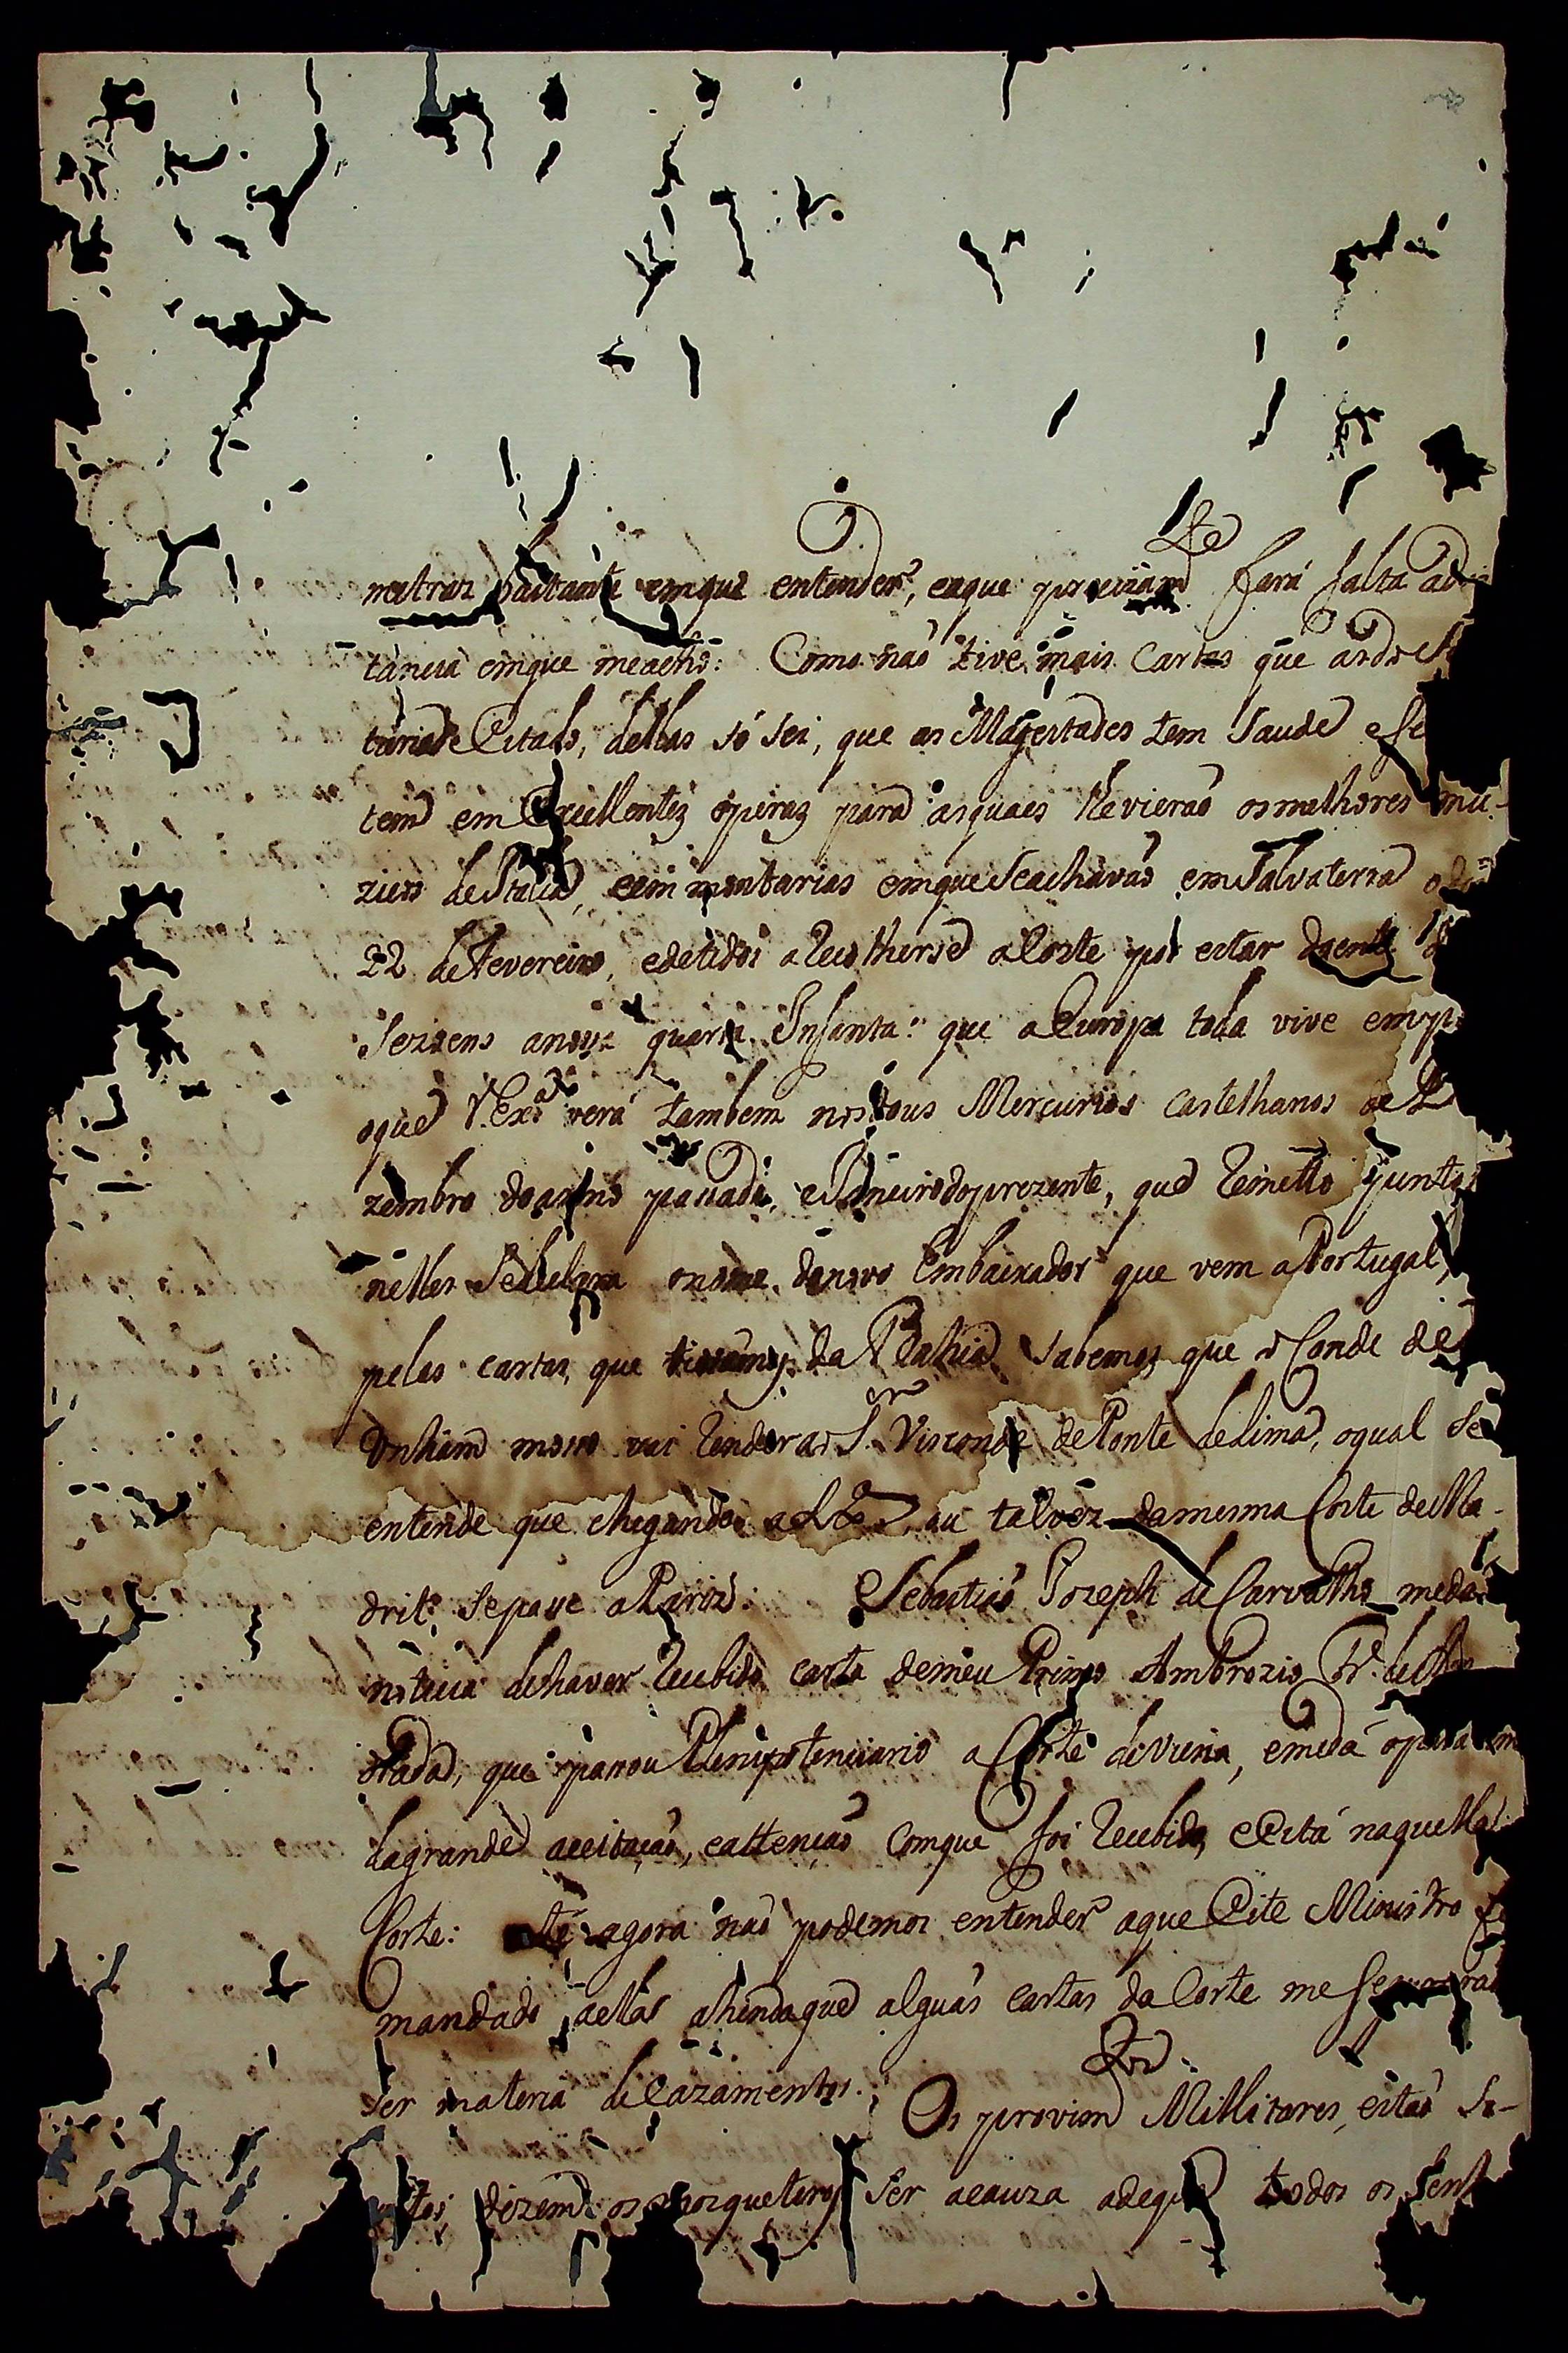 me traz bastante em que entender, e a que precizam.te fará falta a di
tancia em que me acho: Como naõ tive mais cartas que as do
dellas só sei, que as Magestades tem saude e se
tem em Excellentes operas para as quaes lhe vieraõ os melhores mu-
zicos de Italia, e em montarias em que se achavaõ em Salvaterra
22 de Fevereiro, e detidos a recolherse a Corte por estar doente
quarta Infanta: que a Europa toda vive em
o que V. Ex.ª verá tambem nos dous Mercurios castelhanos de De
zembro do anno passado, e Janeiro do prezente, que remetto juntos
nelles se declara o nome do novo Embaixador que vem a Portugal,
pelas cartas, que tivemos da Bahia sabemos que o Conde de
Unham moço vai render ao S.or Visconde de Ponte de Lima, o qual se
entende que chegando a Lx.ª, ou talvez da mesma Corte de Ma-
drit, se passe a Pariz: Sebastiaõ Jozeph de Carvalho me dá
noticia de haver recebido carta de meu Primo Ambrozio Fr.e de An
drada, que passou Plenipotenciario a Corte de Viena, e me dá
da grande aceitaçaõ, e attençaõ com que foi recebido, e está naquella
Corte: té agora naõ podemos entender a que este Ministro
mandado a ella, ahinda que alguãs cartas da Corte me
ser materia de cazamentos. Os provim.tos Millitares, estaõ
dizem os mosqueteiros ser a cauza a de que todos os